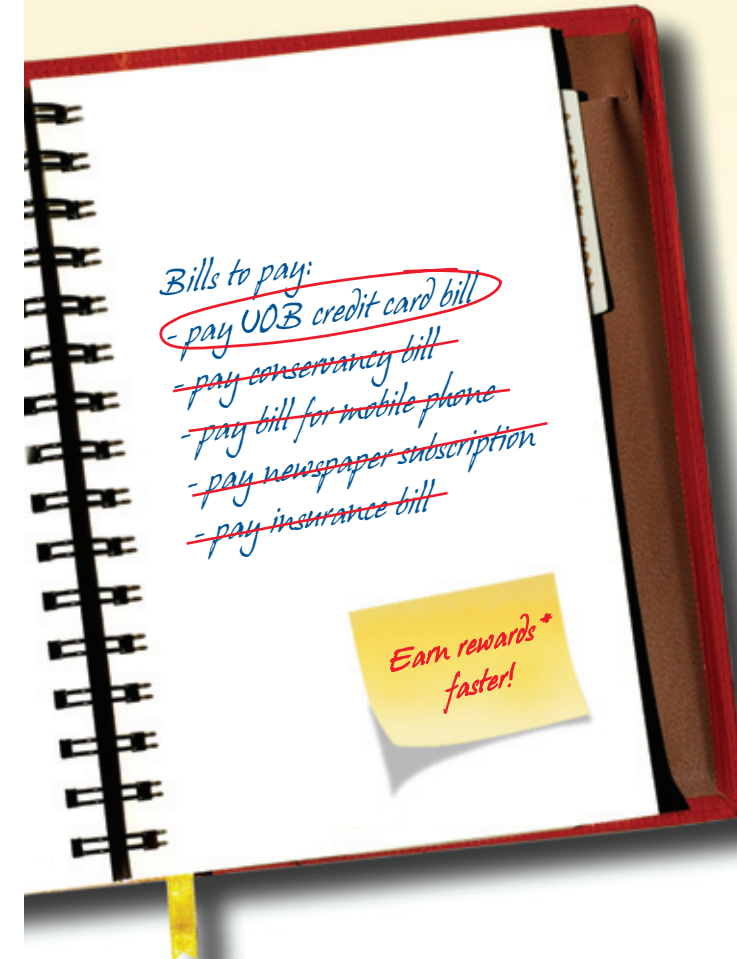 Bills to pay:
- pay UOB credit card bill
- pay conservancy bill
- pay bill for mobile phone
- pay newspaper subscription
- pay insurance bill
Earn rewards*
faster!